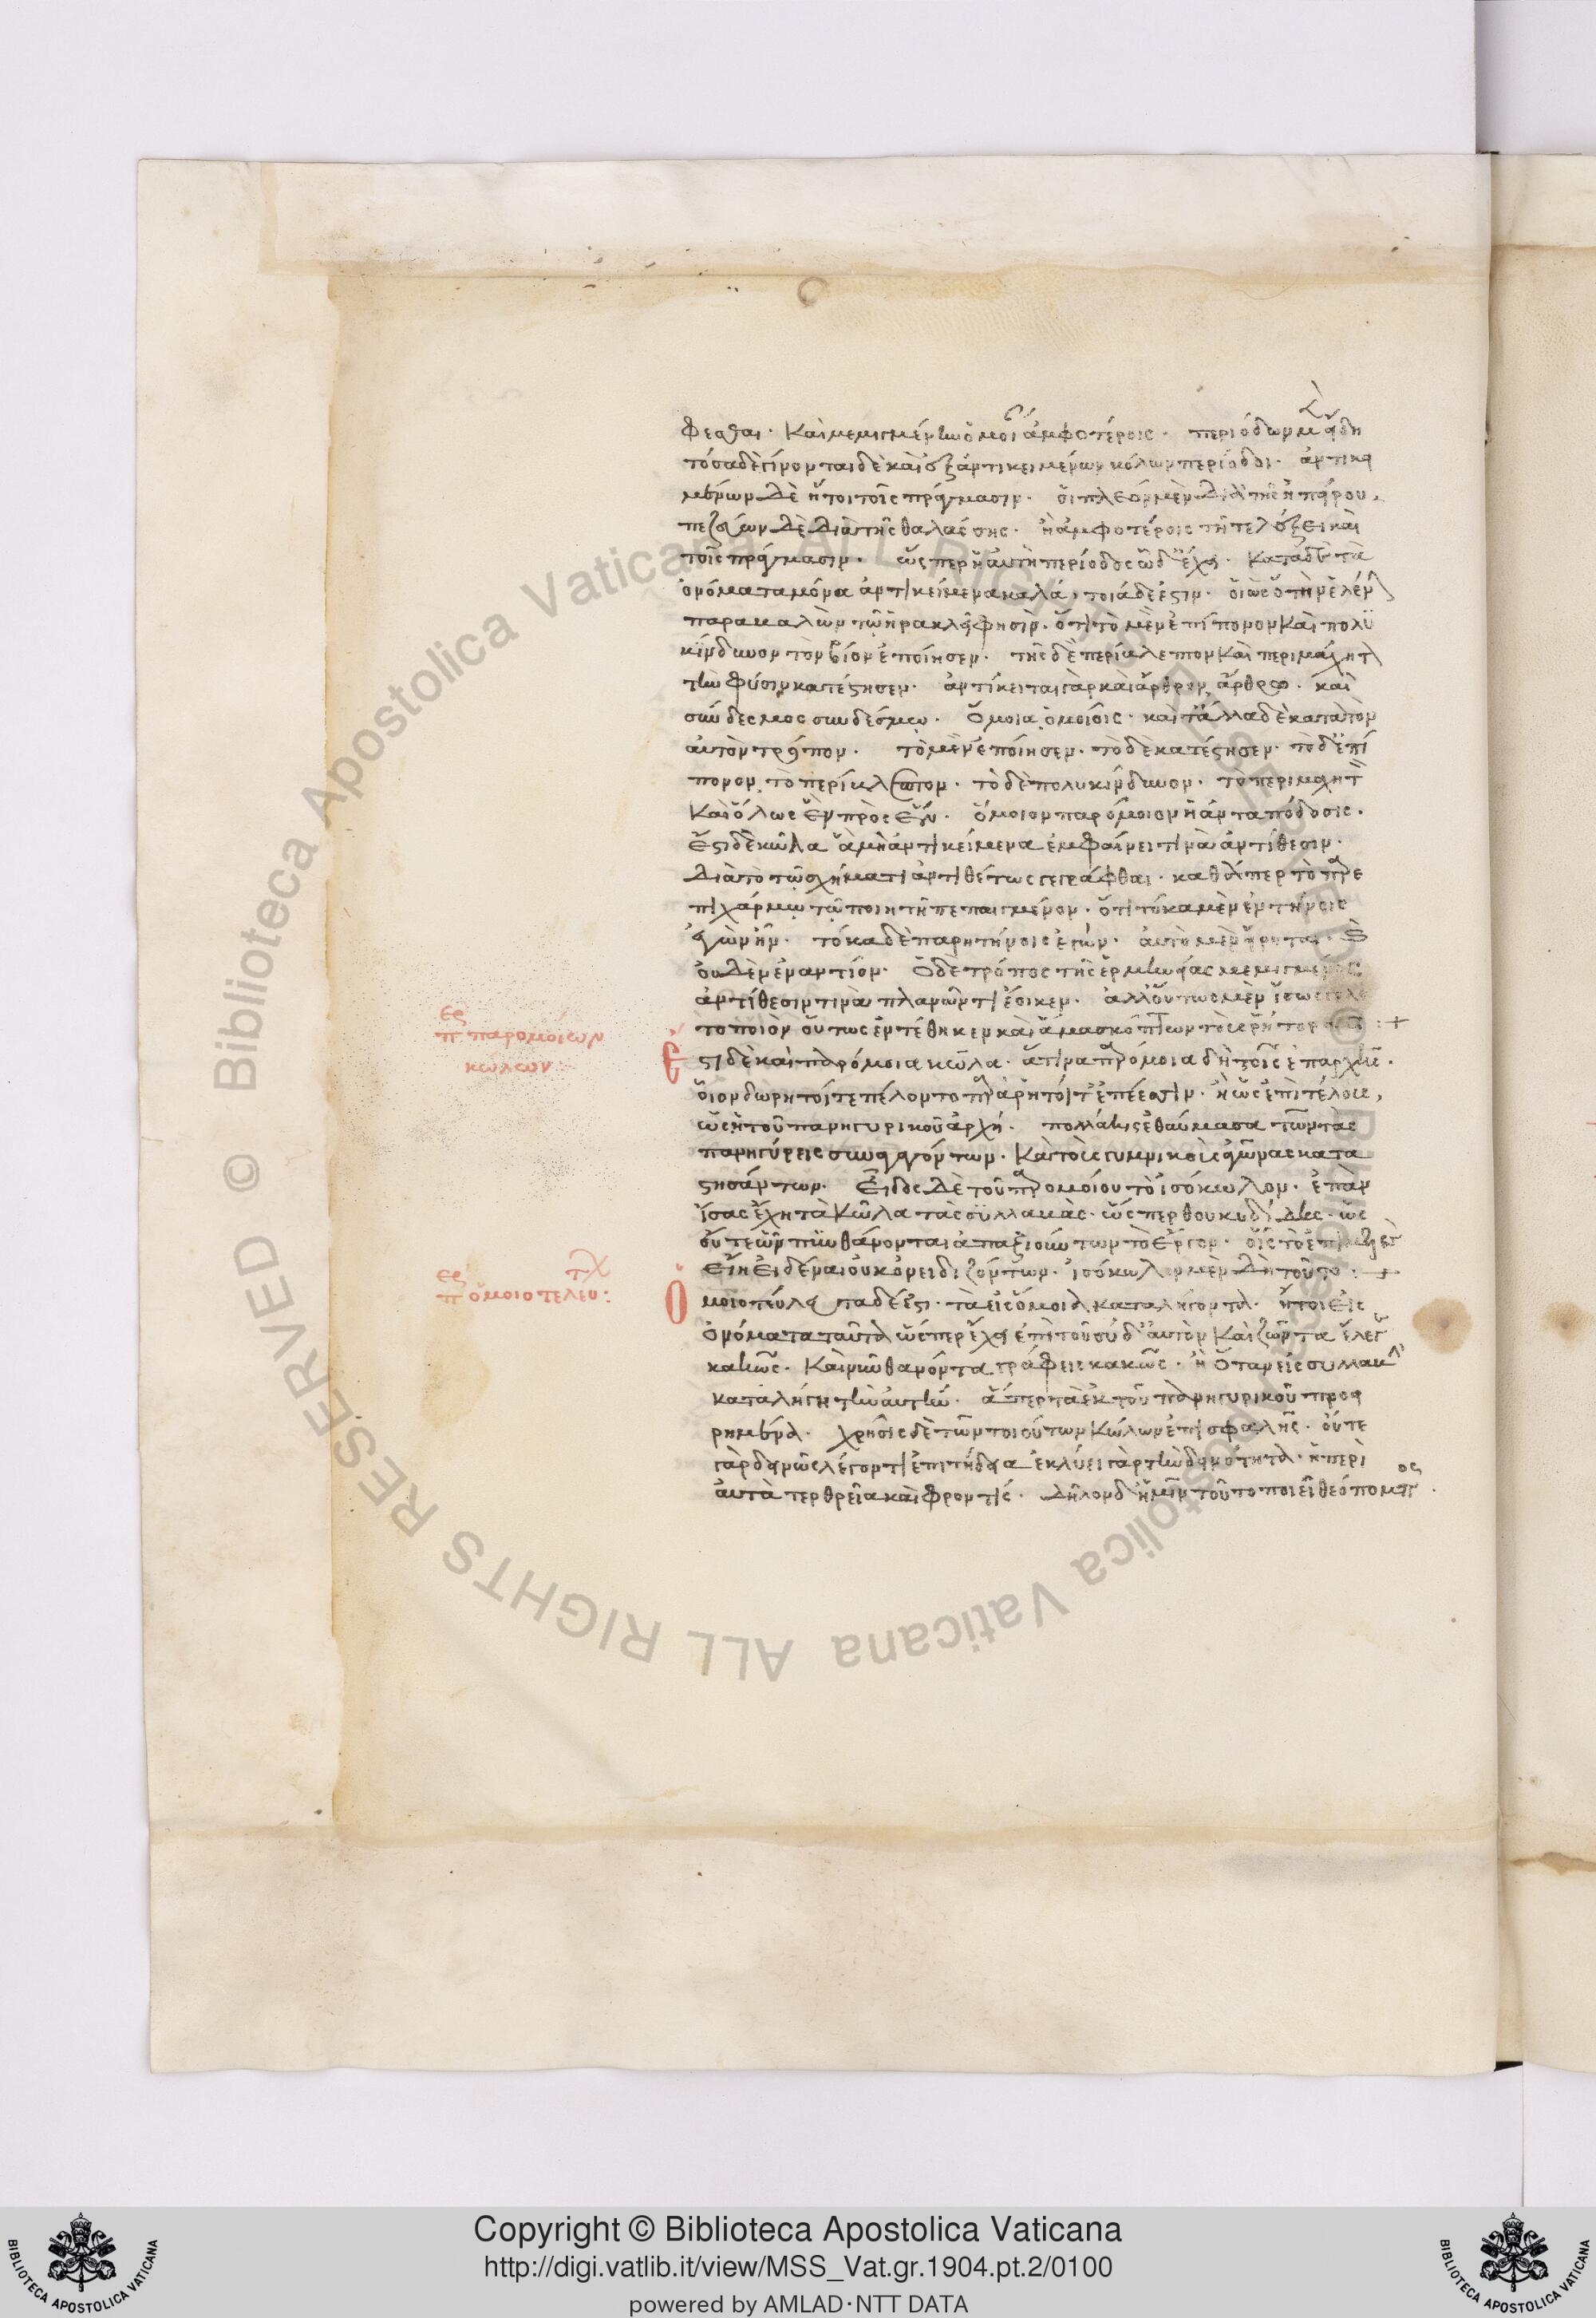 φεσθαι· καὶ μεμιγμένην ὁμοί ἀμφοτέροις· περιόδων μὲν εἴδη
τόσαδε· γίνονται δὲ καὶ ἐξ ἀντικειμένων κώλων περίοδοι· ἀντικει
μένων δὲ ἤτοι τοῖς πράγμασιν· οἷ πλέων μὲν διὰ τῆς ἠπείρου,
πεζεύων δὲ διὰ τῆς θαλάσσης· ἢ ἀμφοτέροις τῇ τε λέξει καὶ
τοῖς πράγμασιν· ὥσπερ ἡ αὐτὴ περίοδος ὧδ' ἔχει· κατὰ δὲ τὰ
ὀνόματα μόνα ἀντικείμενα κῶλα, τοιάδε ἐστίν· οἷ ὡς ὁ τὴν ἑλέν
παραβαλὼν τῷ ἡρακλεῖ φησίν· ὅτι τὸ μὲν ἐπίπονον καὶ πολυ
κίνδυνον τὸν βίον ἐποίησεν· τῆς δὲ περίβλεπτον καὶ περιμάχητ
τὴν φύσιν κατέστησεν· ἀντίκειται γὰρ καὶ ἄρθρον ἄρθρῳ· καὶ
σύνδεσμος συνδέσμῳ· ὅμοια ὁμοίοις· καὶ τἄλλα δὲ κατὰ τὸν
αὐτὸν τρόπον· τὸ μὲν ἐποίησεν· τὸ δὲ κατέστησεν· τὸ δὲ ἐπί
πονον, τὸ περίβλεπτον· τὸ δὲ πολυκίνδυνον· τὸ περιμαχητ
καὶ ὅλως ἓν πρὸς ἕν· ὅμοιον παρ' ὅμοιον ἡ ἀνταπόδοσις·
ἔστι δὲ κῶλα ἃ μὴ ἀντικείμενα ἐμφαίνει τινὰ ἀντίθεσιν·
διὰ τὸ τῷ σχήματι ἀντιθέτως γεγράφθαι· καθάπερ τὸ παρ' ἐ
πιχάρμῳ τῷ ποιητῇ πεπαιγμένον· ὅτι τόκα μὲν ἐν τήνοις
ἐγὼν ἦν· τόκα δὲ παρὰ τήνοις ἐγών· αὐτὸ μὲν εἴρηται· καὶ
οὐδὲν ἐναντίον· ὁ δὲ τρόπος τῆς ἑρμηνείας μεμιγμένος
ἀντίθεσιν τινὰ πλανῶντι ἔοικεν· ἀλλ' οὗτος μὲν ἴσως γελω
τοποιῶν οὕτως ἀντέθηκεν καὶ ἅμα σκώπτων τοὺς ῥήτορας :+
ες
π παρομοίων
κώλων:
ἔστι δὲ καὶ παρόμοια κῶλα· ἅτινα παρόμοια δὴ τοῖς ἐπ' ἀρχῆς·
οἷον δωρητοί τε πέλοντο παράρητοί τ' ἐπέεσσιν· ἢ ὡς ἐπὶ τέλους,
ὡς ἡ τοῦ πανηγυρικοῦ ἀρχή· πολλάκις ἐθαύμασα τῶν τὰς
πανηγύρεις συναγαγόντων· καὶ τοὺς γυμνικοὺς ἀγῶνας κατα
στησάντων· εἶδος δὲ τοῦ παρομοίου τὸ ἰσόκωλον· ἐπὰν
ἴσας ἔχῃ τὰ κῶλα τὰς συλλαβάς· ὥσπερ θουκυδίδης· ὡς
οὔτε ὧν πυνθάνονται ἀπαξιούντων τὸ ἔργον· οἷς τὸ ἐπιμελὲς
εἴη εἰδέναι οὐκ ὀνειδιζόντων· ἰσόκωλον μὲν δὴ τοῦτο :+
ες τλ
π ὁμοιοτελευ:
ὁμοιοτέλευτα δέ ἐστι· τὰ εἰς ὅμοια καταλήγοντα· ἤτοι εἰς
ὀνόματα ταὐτὰ ὥσπερ ἔχει ἐπὶ τοῦ σὺ δ' αὐτὸν καὶ ζῶντα ἔλεγ
κακῶς· καὶ νῦν θανόντα γράφεις κακῶς· ἢ ὅταν εἰς συλλαβ
καταλήγῃ τὴν αὐτήν· ἅπερ τὰ ἐκ τοῦ πανηγυρικοῦ προει
ρημένα· χρῆσις δὲ τῶν τοιούτων κώλων ἐπισφαλής· οὔτε
γὰρ δεινῶς λέγοντι ἐπιτήδεια ἐκλύει γὰρ τὴν δεινότητα· ἡ περὶ
αὐτὰ τερθρεία καὶ φροντίς· δῆλον δ' ἡμῖν τοῦτο ποιεῖ θεόπομπος.
Copyright © Biblioteca Apostolica Vaticana
http://digi.vatlib.it/view/MSS_Vat.gr.1904.pt.2/0100
powered by AMLAD·NTT DATA
BIBLIOTECA APOSTOLICA VATICANA
BIBLIOTECA APOSTOLICA VATICANA
© Biblioteca Apostolica Vaticana ALL RIGHTS RESERVED
© Biblioteca Apostolica Vaticana ALL RIGHTS RESERVED